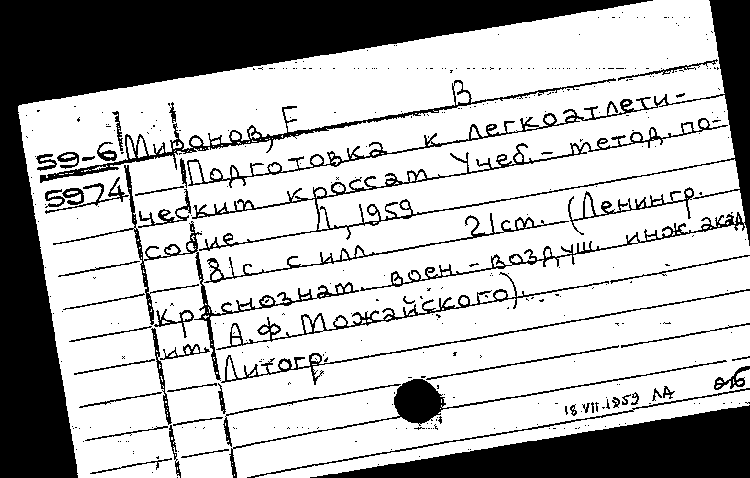 59-6 Миронов, Е В
5974 Подготовка к легкоатлети-
ческит кроссат. Учеб.-метод. по-
собие. Л., 1959
81с. с илл. 21ст. (Ленингр.
Краснознат. воен.-воздуш. инж. акад
ит. А.Ф. Можайского).
Литогр.
18 VII.1959 ЛА